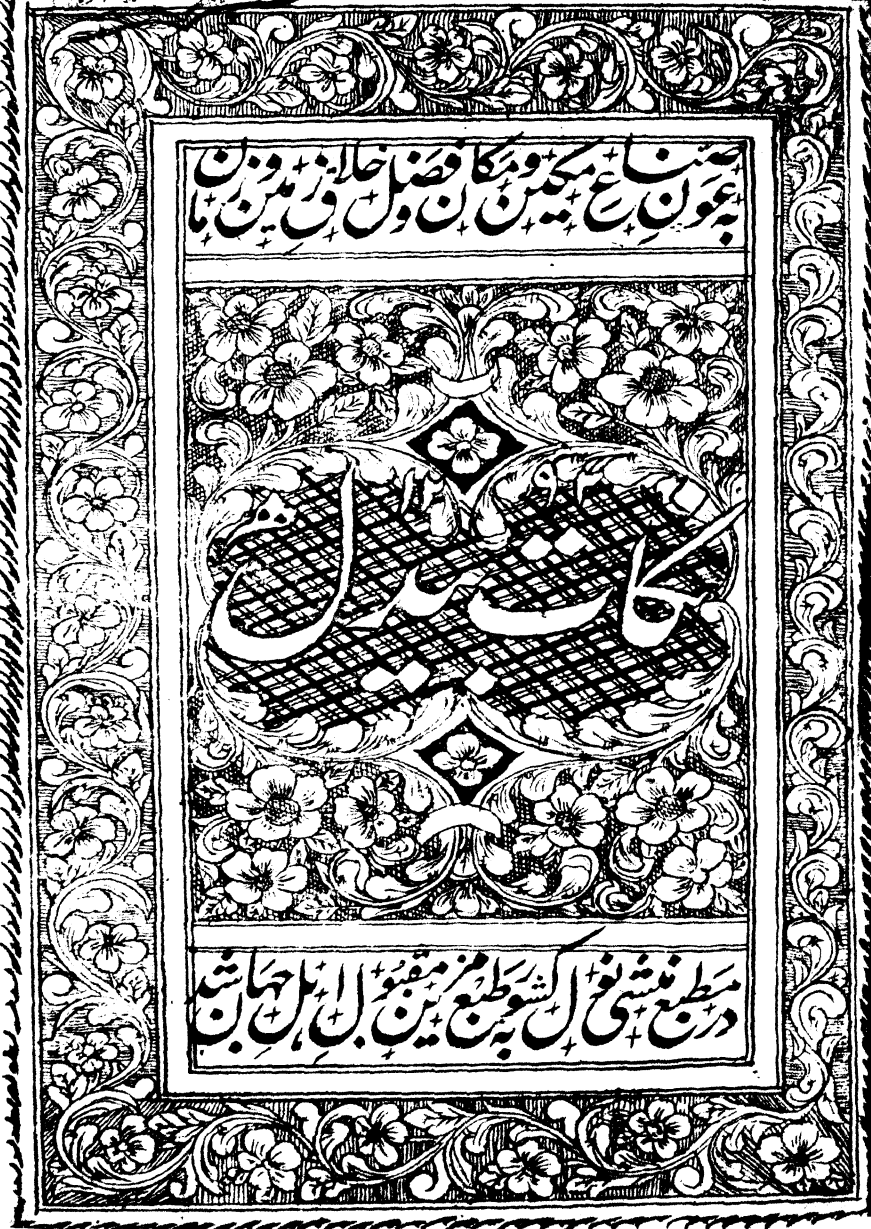 به عونِ صناعِ مکین و مکان و فضل خلاق زمین و زمان
نکات بیدل
در مطبع منشی نولکشور به طبع مزین مقبول اهلِ جهان شد